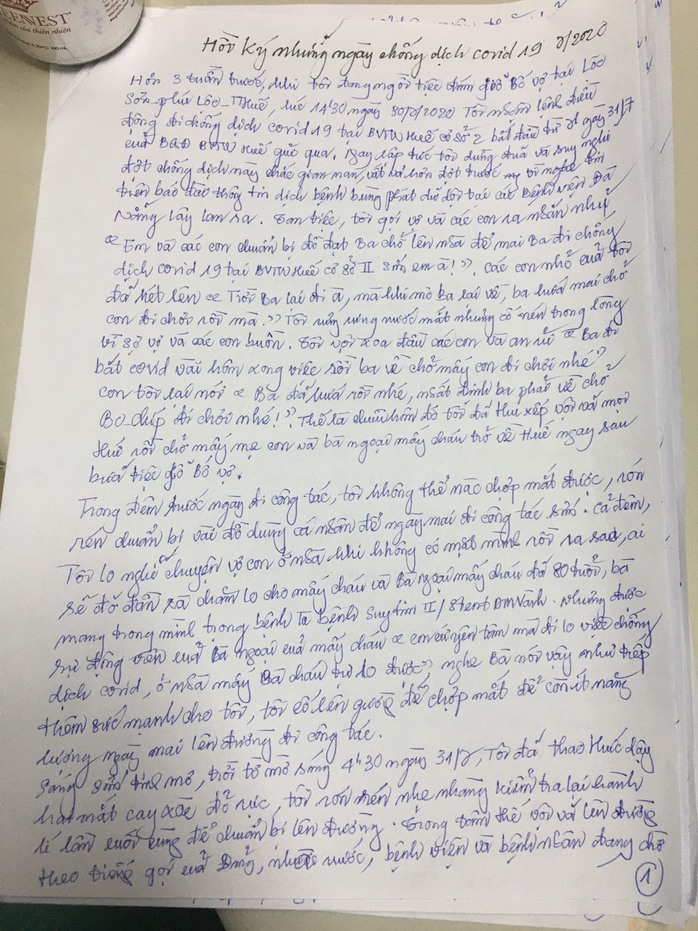 EEWEST
Hồi Ký những ngày chống dịch covid 19 8/2020
Hơn 3 tuần trước, khi tôi đang ngồi tiệc đám giỗ Bố vợ tại Lộc
Sơn phú Lộc - T Huế, lúc 14h30 ngày 30/7/2020 Tôi nhận lệnh điều
động đi chống dịch covid 19 tại BVTW Huế cơ sở 2 bắt đầu từ ngày 31/7
của BGĐ BVTW Huế gửi qua. Ngay lập tức tôi dừng đũa và suy nghĩ
đợt chống dịch này chắc gian nan, vất vả hơn đợt trước vì nghe tin
trên báo đài thấy tin dịch bệnh bùng phát dữ dội tại các Bệnh viện Đà
Nẵng lây lan ra. Tan tiệc, tôi gọi vợ và các con ra nhắn nhủ
“ Em và các con chuẩn bị đồ đạt Ba chở lên nhà để mai Ba đi chống
dịch covid 19 tại BVTW Huế cơ sở II sớm em à!”. các con nhỏ của tôi
đã hét lên “ Trời Ba lại đi à, mà khi mô Ba lại về, ba hứa mai chở
con đi chơi rồi mà.” Tôi rưng rưng nước mắt nhưng cố nén trong lòng
vì sợ vợ và các con buồn. Tôi vội xoa đầu các con và an ủi “ Ba đi
bắt covid vài hôm xong việc rồi ba về chở mấy con đi chơi nhé”
con tôi lại nói “ Ba đã hứa rồi nhé, nhất định ba phải về chở
Bo chíp đi chơi nhé!”. Thế là chiều hôm đó tôi đã thu xếp vội vã mọi
thứ rồi chở mấy mẹ con và bà ngoại mấy cháu trở về Huế ngay sau
bữa tiệc giỗ bố vợ.
Trong đêm trước ngày đi công tác, tôi không thể nào chợp mắt được, rón
rén chuẩn bị vài đồ dùng cá nhân để ngày mai đi công tác sớm. cả đêm,
Tôi lo nghĩ chuyện vợ con ở nhà khi không có mặt mình rồi ra sao, ai
sẽ đỡ đần và chăm lo cho mấy cháu và Bà ngoại mấy cháu đã 80 tuổi, bà
mang trong mình trong bệnh là bệnh Suy tim II/ Stent ĐMVành. Nhưng được
sự động viên của Bà ngoại của mấy cháu “ con cứ yên tâm mà đi lo việc chống
dịch covid, ở nhà mấy Bà cháu tự lo được” nghe Bà nói vậy như tiếp
thêm sức mạnh cho tôi, tôi cố lên giường để chợp mắt để còn ít năng
lượng ngày mai lên đường đi công tác.
Sáng sớm tinh mơ, trời tờ mờ sáng 4h30 ngày 31/7, Tôi đã thao thức dậy
hai mắt cay xòe đỏ rực, tôi rón rén nhẹ nhàng kiểm tra lại hành
lí lần cuối cùng để chuẩn bị lên đường. Trong tâm thế vội vã lên đường
theo tiếng gọi của Đảng, nhà nước, bệnh viện và bệnh nhân đang chờ
1